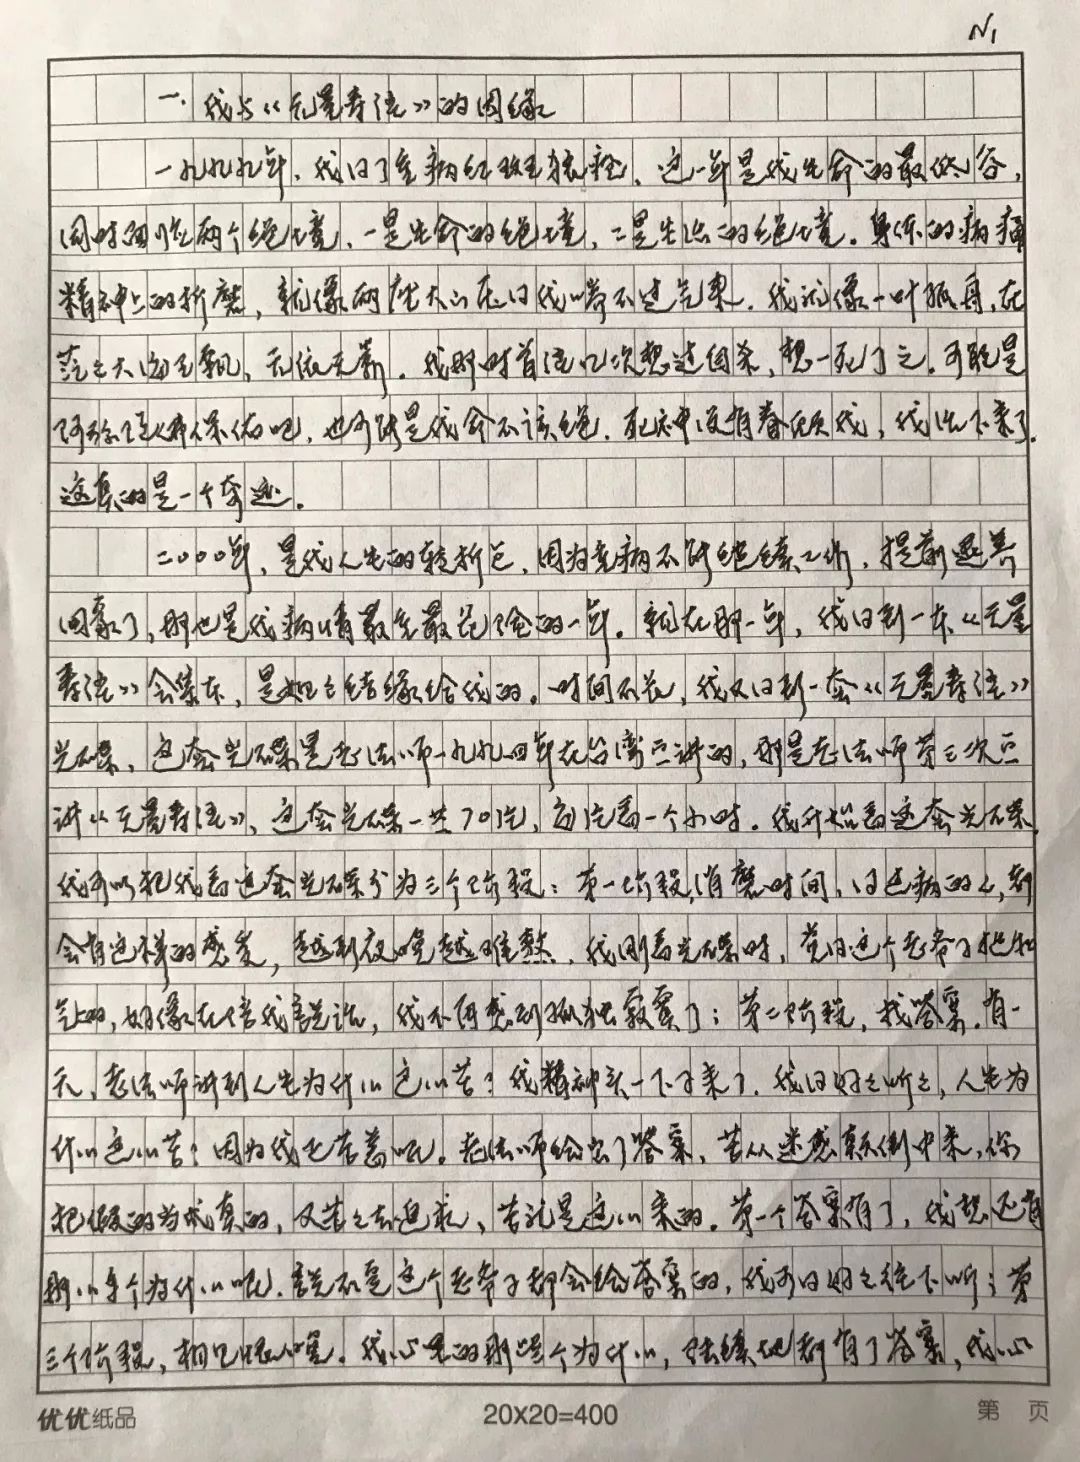 N1
一.我与《无量寿经》的因缘
一九九九年，我得了重病红斑狼疮，这一年是我生命的最低谷，
同时面临两个绝境，一是生命的绝境，二是生活的绝境。身体的病痛
精神上的折磨，就像两座大山压得我喘不过气来。我就像一叶孤舟，在
茫茫大海里飘，无依无靠。我那时曾经几次想过自杀，想一死了之。可能是
阿弥陀佛保佑吧，也可能是我命不该绝。死神没有眷顾我，我活下来了。
这真的是一个奇迹。
二000年，是我人生的转折点，因为有病不能继续工作，提前退养
回家了，那也是我病情最重最危险的一年。就在那一年，我得到一本《无量
寿经》会集本，是姐姐结缘给我的。时间不长，我又得到一套《无量寿经》
光碟，这套光碟是老法师一九九四年在台湾宣讲的，那是老法师第三次宣
讲《无量寿经》，这套光碟一共70片，每片为一个小时。我开始看这套光碟。
我可以把我看这套光碟分为三个阶段：第一阶段，消磨时间，得过病的人，都
会有这样的感受，越到夜晚越难熬，我刚看光碟时，觉得这个老爷子挺和
气的，好像在陪我说话，我不再感到孤独寂寞了；第二阶段，找答案。有一
天，老法师讲到人生为什么这么苦？我精神头一下子来了。我得好好听听，人生为
什么这么苦？因为我也苦着呢。老法师给出了答案，苦从迷惑颠倒中来，你
把假的当成真的，又苦苦去追求，苦就是这么来的。第一个答案有了，我想还有
那么多个为什么呢，说不定这个老爷子都会给答案的，我可得好好往下听；第
三个阶段，相见恨晚。我心里的那些个为什么，陆续地都有了答案，我心
优优纸品
20X20=400
第 页